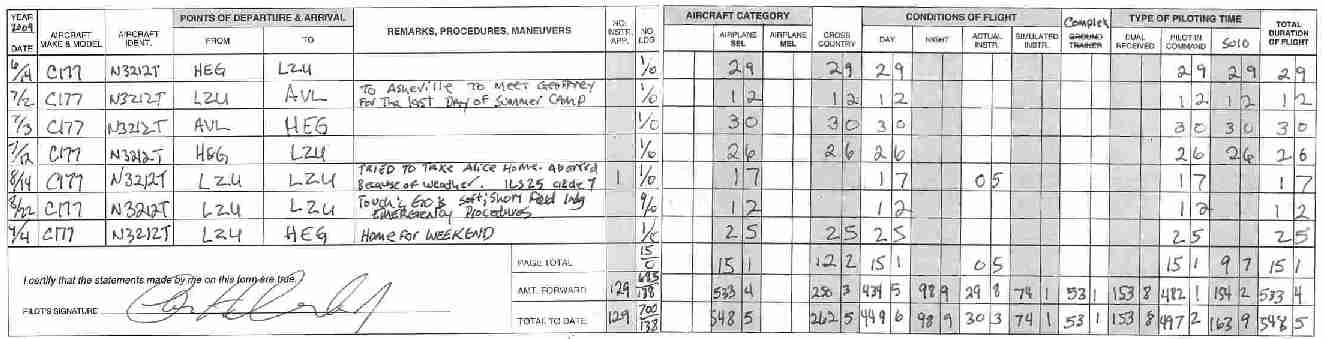 YEAR 2009 DATE AIRCRAFT MAKE & MODEL AIRCRAFT IDENT. POINTS OF DEPARTURE & ARRIVAL FROM TO REMARKS, PROCEDURES, MANEUVERS NO. INSTR. APP. NO. LDG AIRCRAFT CATEGORY AIRPLANE SEL AIRPLANE MEL CROSS COUNTRY CONDITIONS OF FLIGHT DAY NIGHT ACTUAL INSTR. SIMULATED INSTR. Complex GROUND TRAINER TYPE OF PILOTING TIME DUAL RECEIVED PILOT IN COMMAND SOLO TOTAL DURATION OF FLIGHT
C177 N3212T HEG LZU 1/0 2 9 2 9 2 9 2 9 2 9 2 9
7/2 C177 N3212T LZU AVL To Asheville To Meet Geoffrey For The last Day of Summer Camp 1/0 1 2 1 2 1 2 1 2 1 2 1 2
7/3 C177 N3212T AVL HEG 1/0 3 0 3 0 3 0 3 0 3 0 3 0
7/12 C177 N3212T HEG LZU 1/0 2 6 2 6 2 6 2 6 2 6 2 6
8/14 C177 N3212T LZU LZU TRIED TO TAKE Alice Home. Aborted Because of weather. ILS25 1 1/0 1 7 1 7 0 5 1 7 1 7
8/22 C177 N3212T LZU LZU Touch & GO's Soft; Short Field lndg Emergency Procedures 9/0 1 2 1 2 1 2 1 2
C177 N3212T LZU HEG Home For WEEKEND 2 5 2 5 2 5 2 5 2 5
I certify that the statements made by me on this form are true.
PILOT'S SIGNATURE
PAGE TOTAL 15/0 15 1 12 2 15 1 0 5 15 1 9 7 15 1
AMT. FORWARD 129 685/138 533 4 250 3 434 5 98 9 29 8 74 1 53 1 153 8 482 1 154 2 533 4
TOTAL TO DATE 129 700/138 548 5 262 5 449 6 98 9 30 3 74 1 53 1 153 8 497 2 163 9 548 5